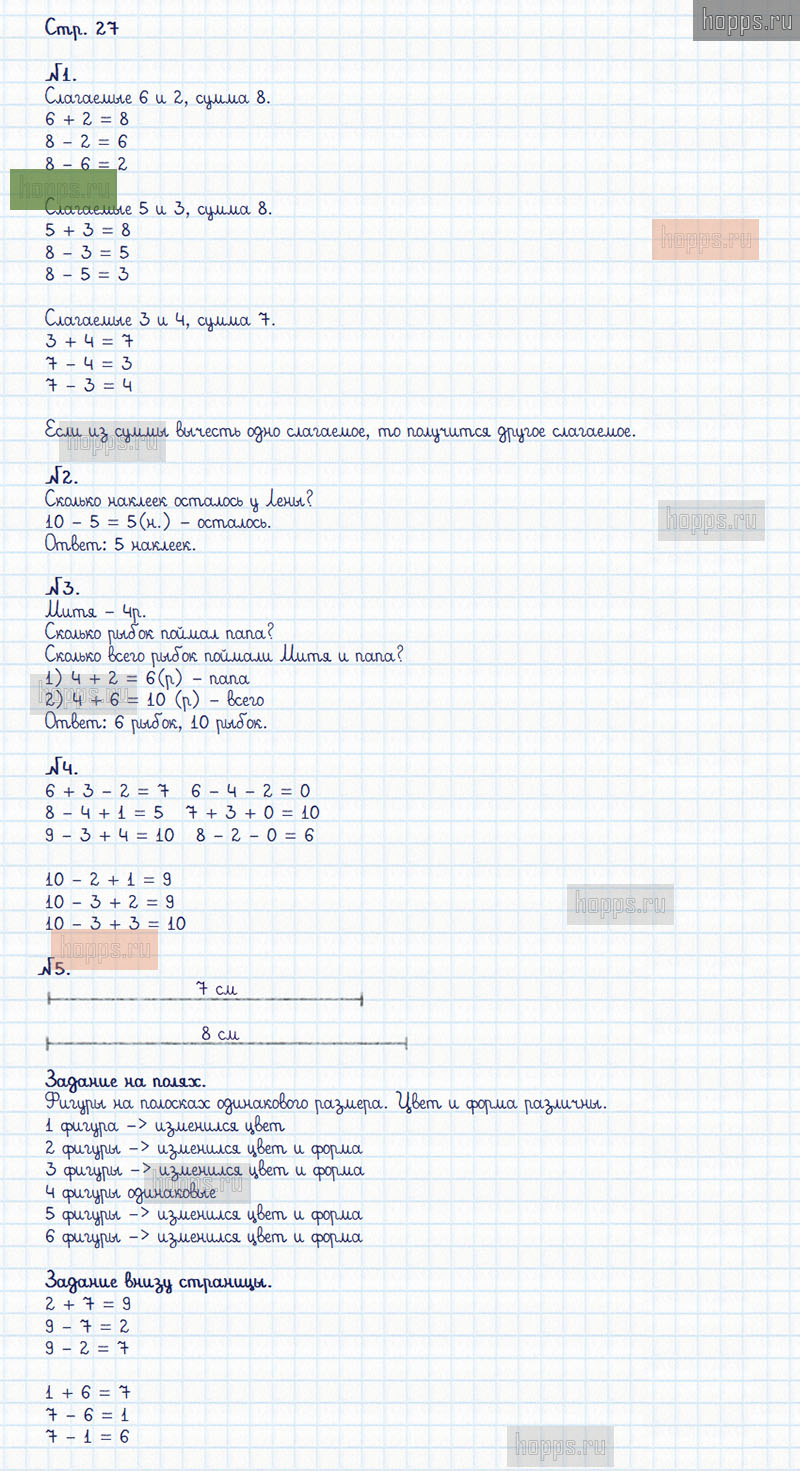 hopps.ru
Стр. 27
№1.
Слагаемые 6 и 2, сумма 8.
6 + 2 = 8
8 - 2 = 6
8 - 6 = 2
hopps.ru
Слагаемые 5 и 3, сумма 8.
5 + 3 = 8
hopps.ru
8 - 3 = 5
8 - 5 = 3
Слагаемые 3 и 4, сумма 7.
3 + 4 = 7
7 - 4 = 3
7 - 3 = 4
Если из суммы вычесть одно слагаемое, то получится другое слагаемое.
hopps.ru
№2.
Сколько наклеек осталось у Лены?
10 - 5 = 5(н.) - осталось.
hopps.ru
Ответ: 5 наклеек.
№3.
Митя - 4р.
Сколько рыбок поймал папа?
Сколько всего рыбок поймали Митя и папа?
1) 4 + 2 = 6(р) - папа
hopps.ru
2) 4 + 6 = 10 (р) - всего
Ответ: 6 рыбок, 10 рыбок.
№4.
6 + 3 - 2 = 7 6 - 4 - 2 = 0
8 - 4 + 1 = 5 7 + 3 + 0 = 10
9 - 3 + 4 = 10 8 - 2 - 0 = 6
10 - 2 + 1 = 9
10 - 3 + 2 = 9
hopps.ru
10 - 3 + 3 = 10
hopps.ru
№5.
7 см
8 см
Задание на полях.
Фигуры на полосках одинакового размера. Цвет и форма различны.
1 фигура -> изменился цвет
2 фигуры -> изменился цвет и форма
3 фигуры -> изменился цвет и форма
hopps.ru
4 фигуры одинаковые
5 фигуры -> изменился цвет и форма
6 фигуры -> изменился цвет и форма
Задание внизу страницы.
2 + 7 = 9
9 - 7 = 2
9 - 2 = 7
1 + 6 = 7
7 - 6 = 1
7 - 1 = 6
hopps.ru